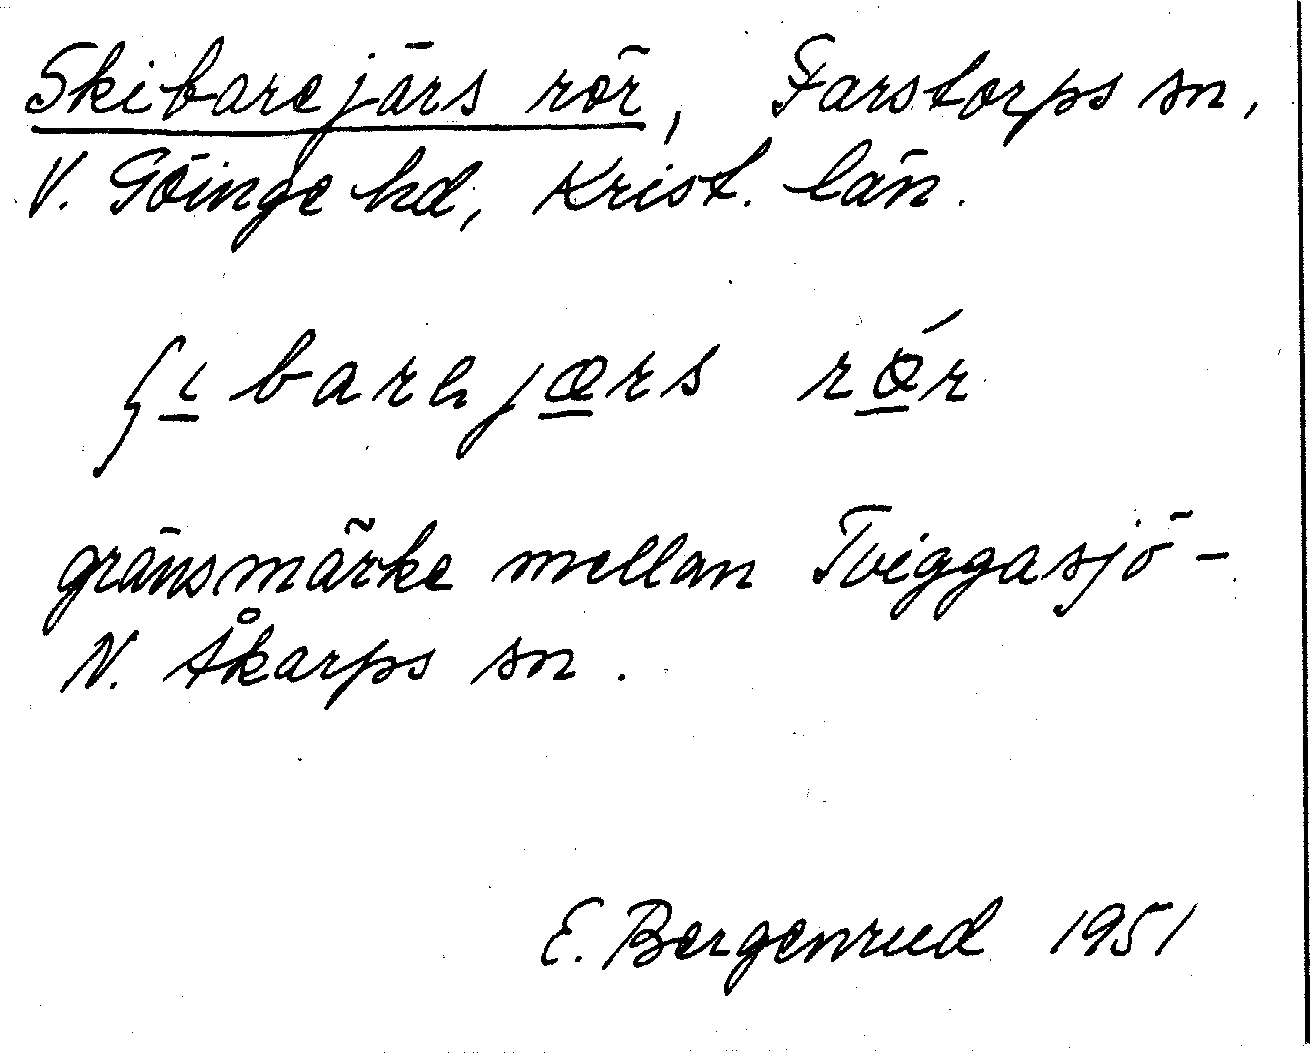 Skibarejärs rör, Farstorps sn,
V. Göinge hd, Krist. län.
ʃi̲barəjæ̲rs rǿ̲r
gränsmärke mellan Tviggasjö -
N. Åkarps sn.
E. Bergenrud 1951